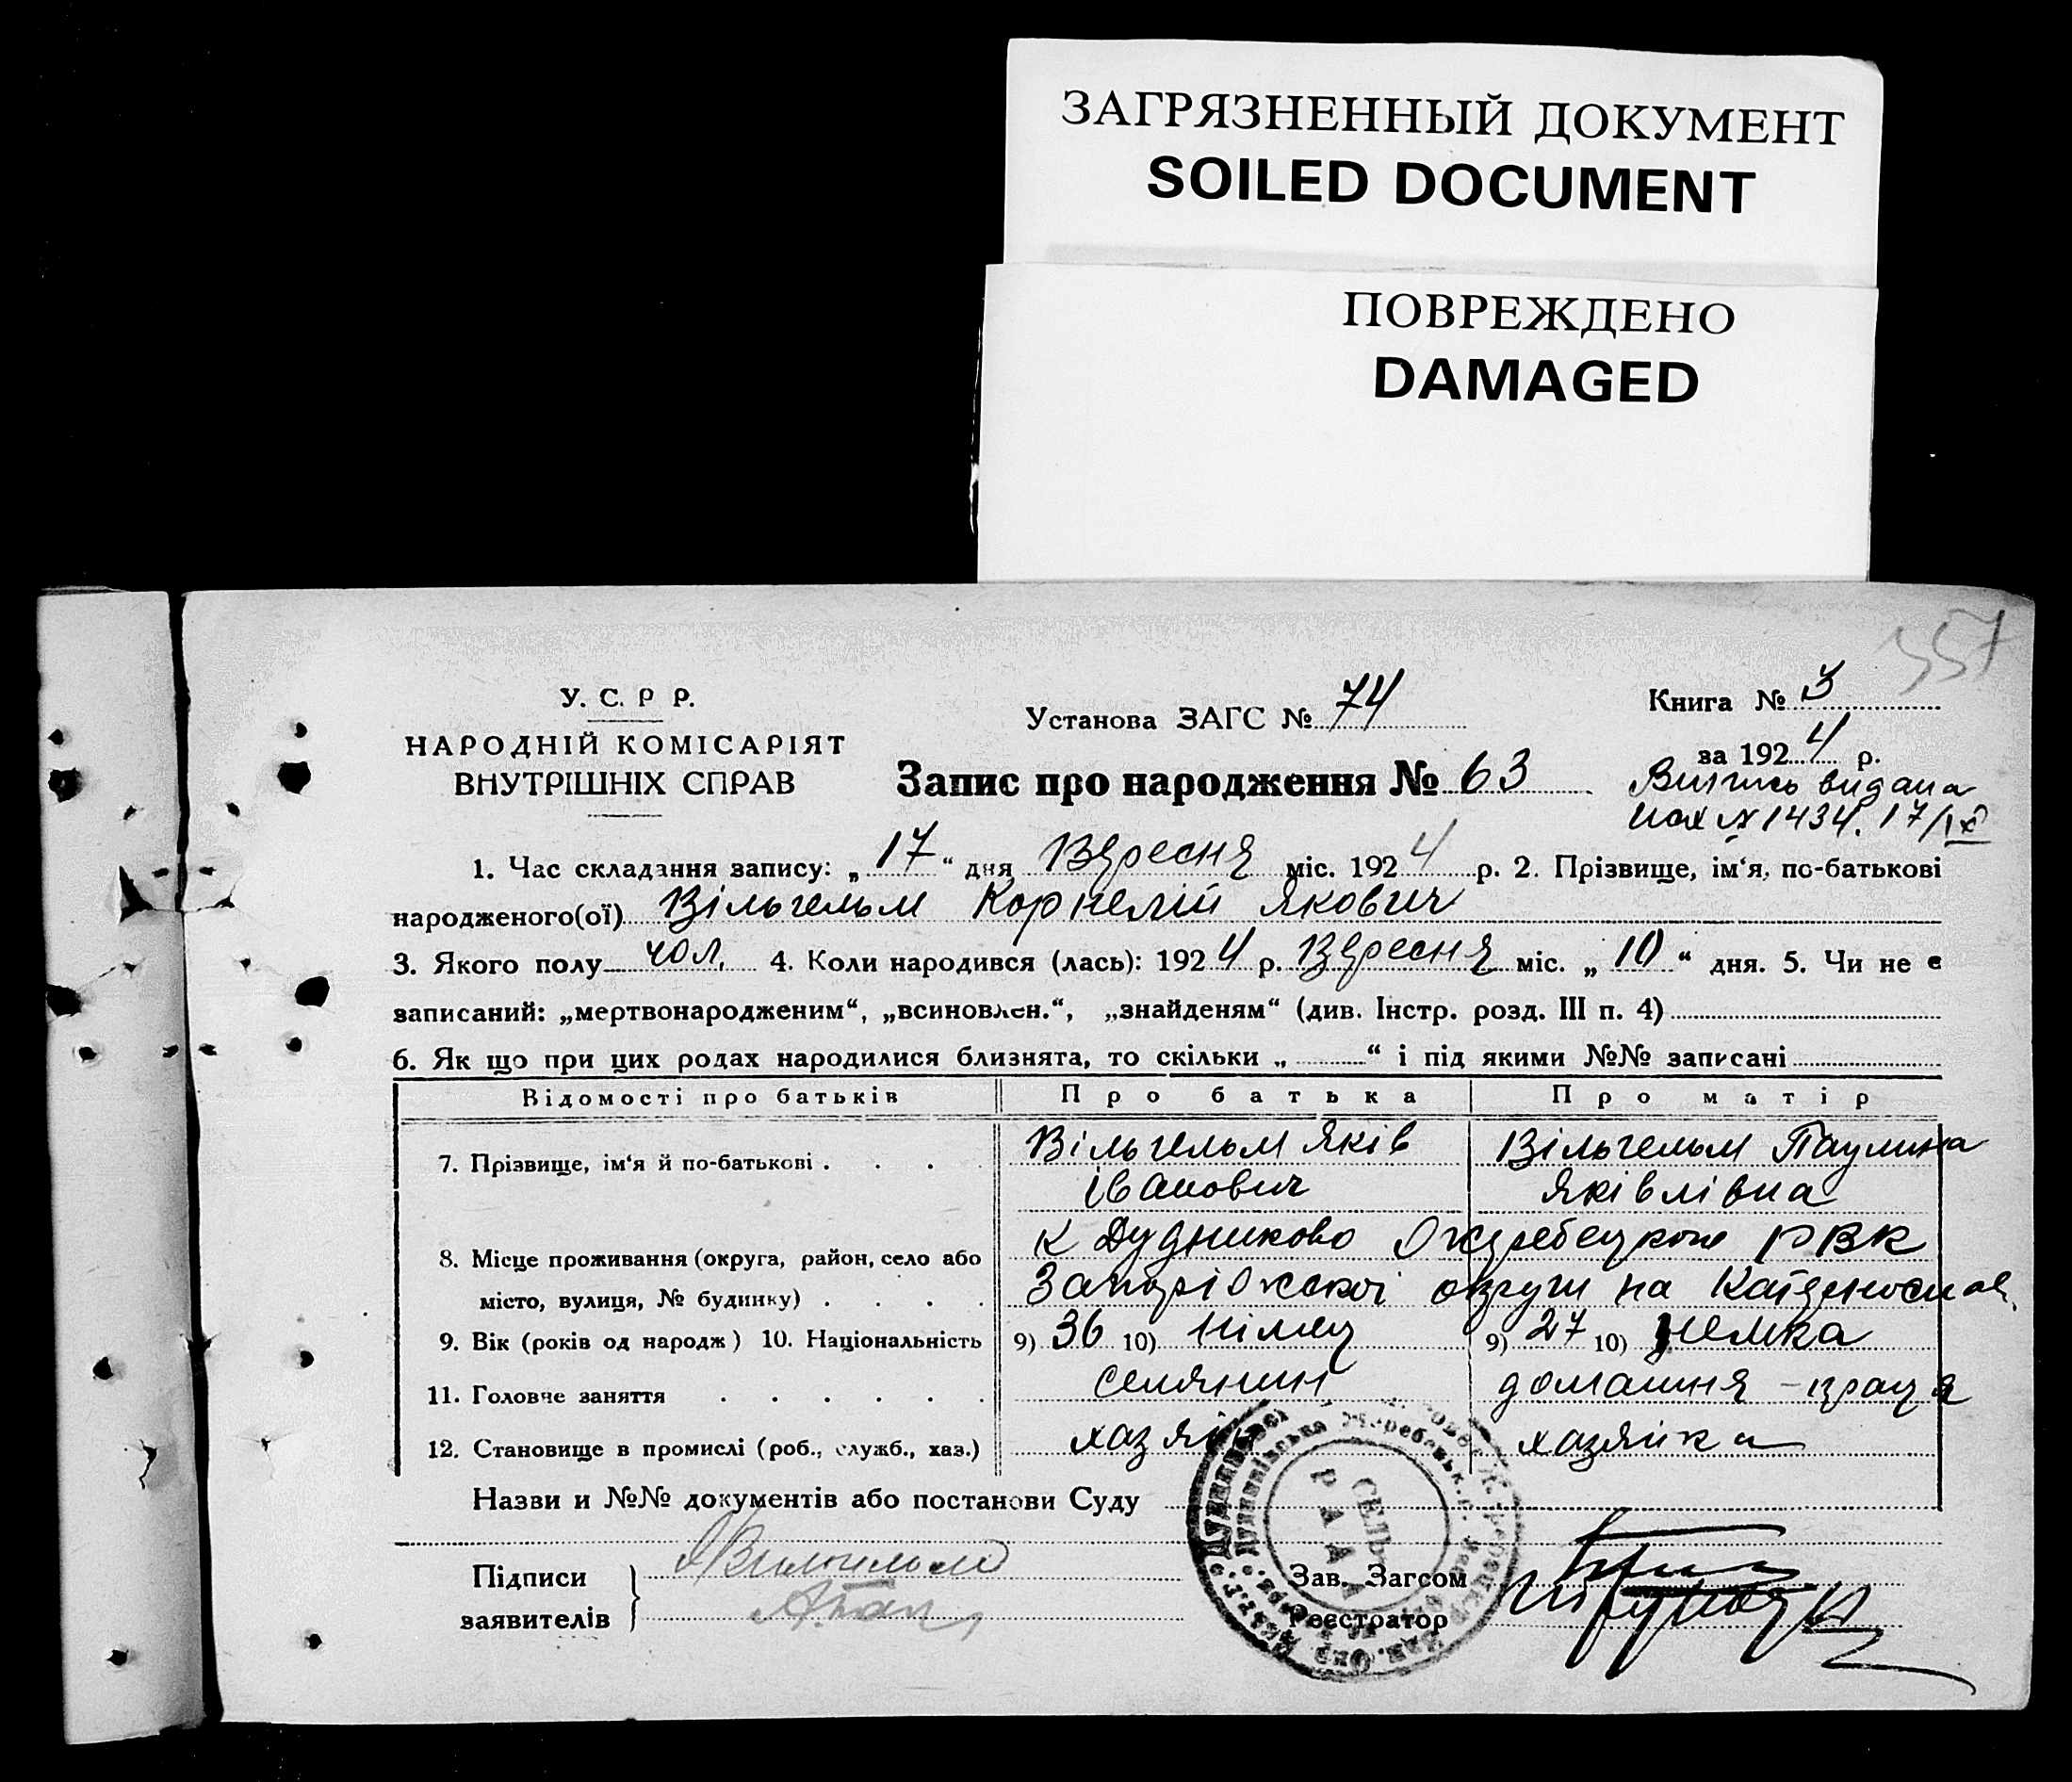 ЗАГРЯЗНЕННЫЙ ДОКУМЕНТ
SOILED DOCUMENT
ПОВРЕЖДЕНО
DAMAGED
357
У. С. Р Р.
НАРОДНІЙ КОМІСАРІЯТ
ВНУТРІШНІХ СПРАВ
Установа ЗАГС № 74
Книга № 3
за 1924 р.
Запис про народження № 63
Витись видана
№ 1434. 17/IX
1. Час складання запису: „17“ дня Вересня міс. 1924 р. 2. Прізвище, ім‘я, по-батькові
народженого(ої) Вільгельм Корнелій Якович
3. Якого полу чол. 4. Коли народився (лась): 1924 р. Вересня міс. „10“ дня. 5. Чи не є
записаний: „мертвонародженим“, „всиновлен.“, „знайденям“ (див. Інстр. розд. III п. 4)
6. Як що при цих родах народилися близнята, то скільки „ “ і під якими №№ записані
Відомості про батьків Про батька Про матір
7. Прізвище, ім‘я й по-батькові . . . . Вільгельм Яків Вільгельм Паулина
Іванович Яківлівна
к Дудниково РВК
8. Місце проживання (округа, район, село або
Запоріжской округи на
місто, вулиця, № будинку) . . . .
9. Вік (років од народж) 10. Національність 9) 36 10) німец 9) 27 10) немка
11. Головне заняття . . . . . . селянин домашня - праця
12. Становище в промислі (роб., служб., хаз.) хазяін хазяйка
Назви и №№ документів або постанови Суду
СЕЛЬ-
РАДА
Підписи
заявителів
Зав. Загсом
Реєстратор